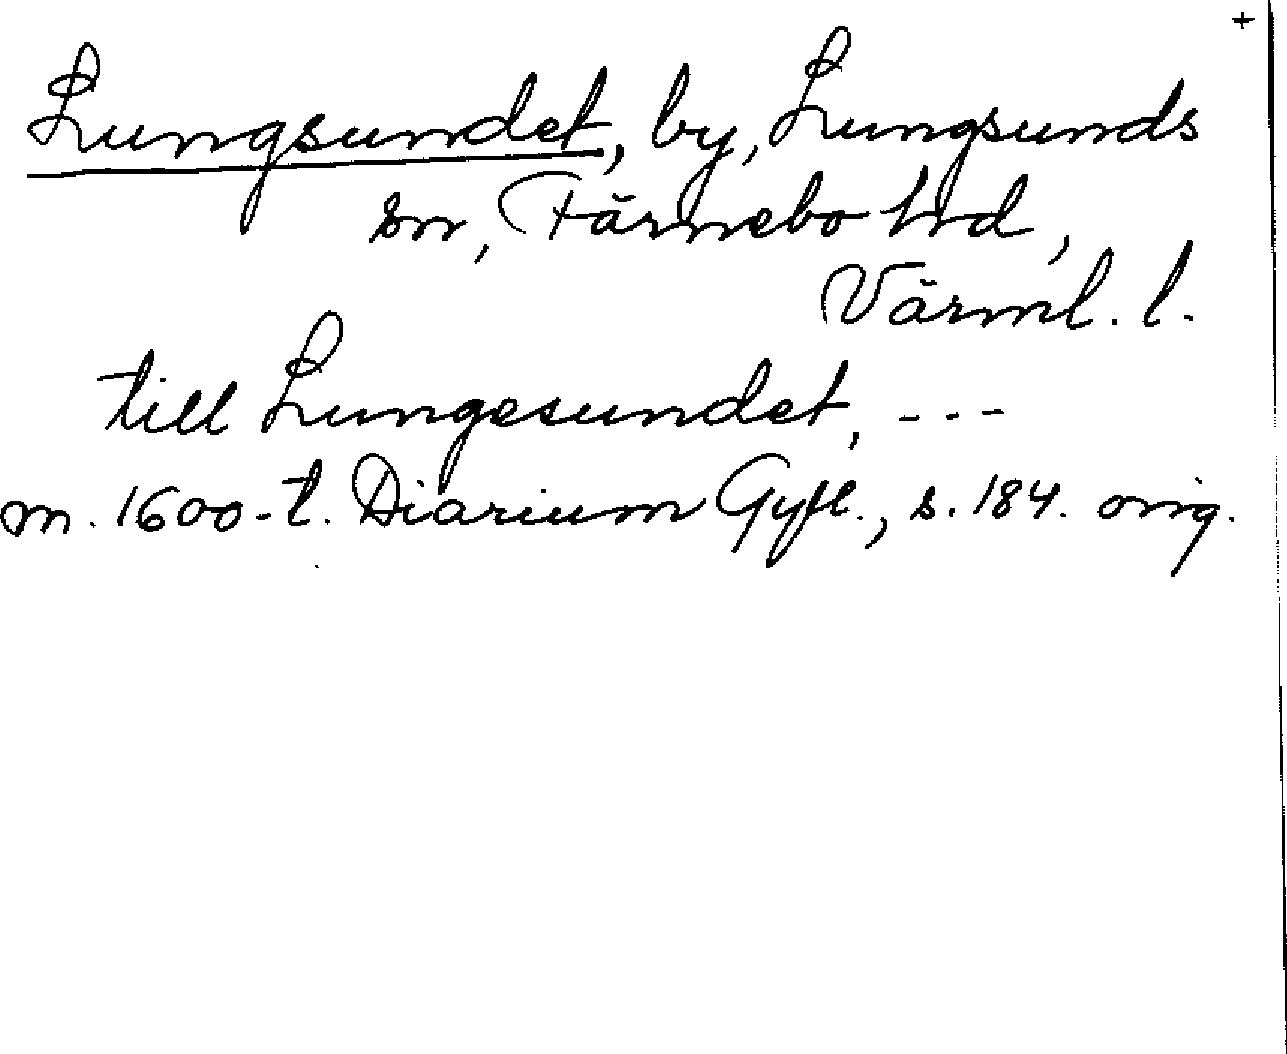 +
Lungsundet, by, Lungsunds
sn, Färnebo hd,
Värml. l.
till Lungesundet, ---
m. 1600-t. Diarium Gyll., s. 184. orig.